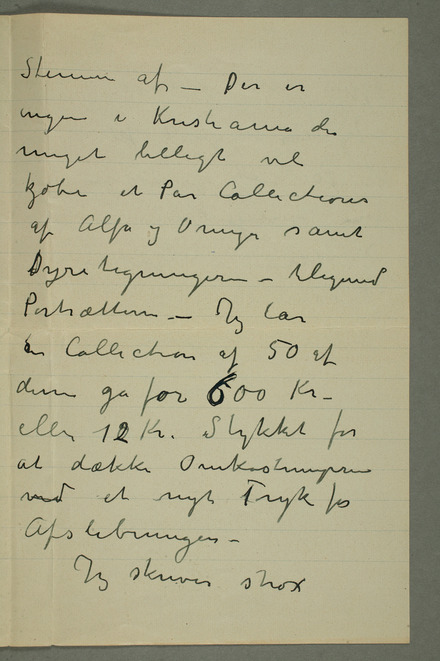 Stenene af – Der er
ingen i Kristiania der
meget billigt vil
kjøbe et Par Collectioner
af Alfa og Omega samt
Dyretegningerne – tilligemed
Portrætterne – Jeg lar
en Collection af 50 af
dem gå for 600 Kr –
eller 12 Kr. Stykket for
at dække Omkostningerne
ved et nyt Tryk før
Afslibningen –
Jeg skriver strax